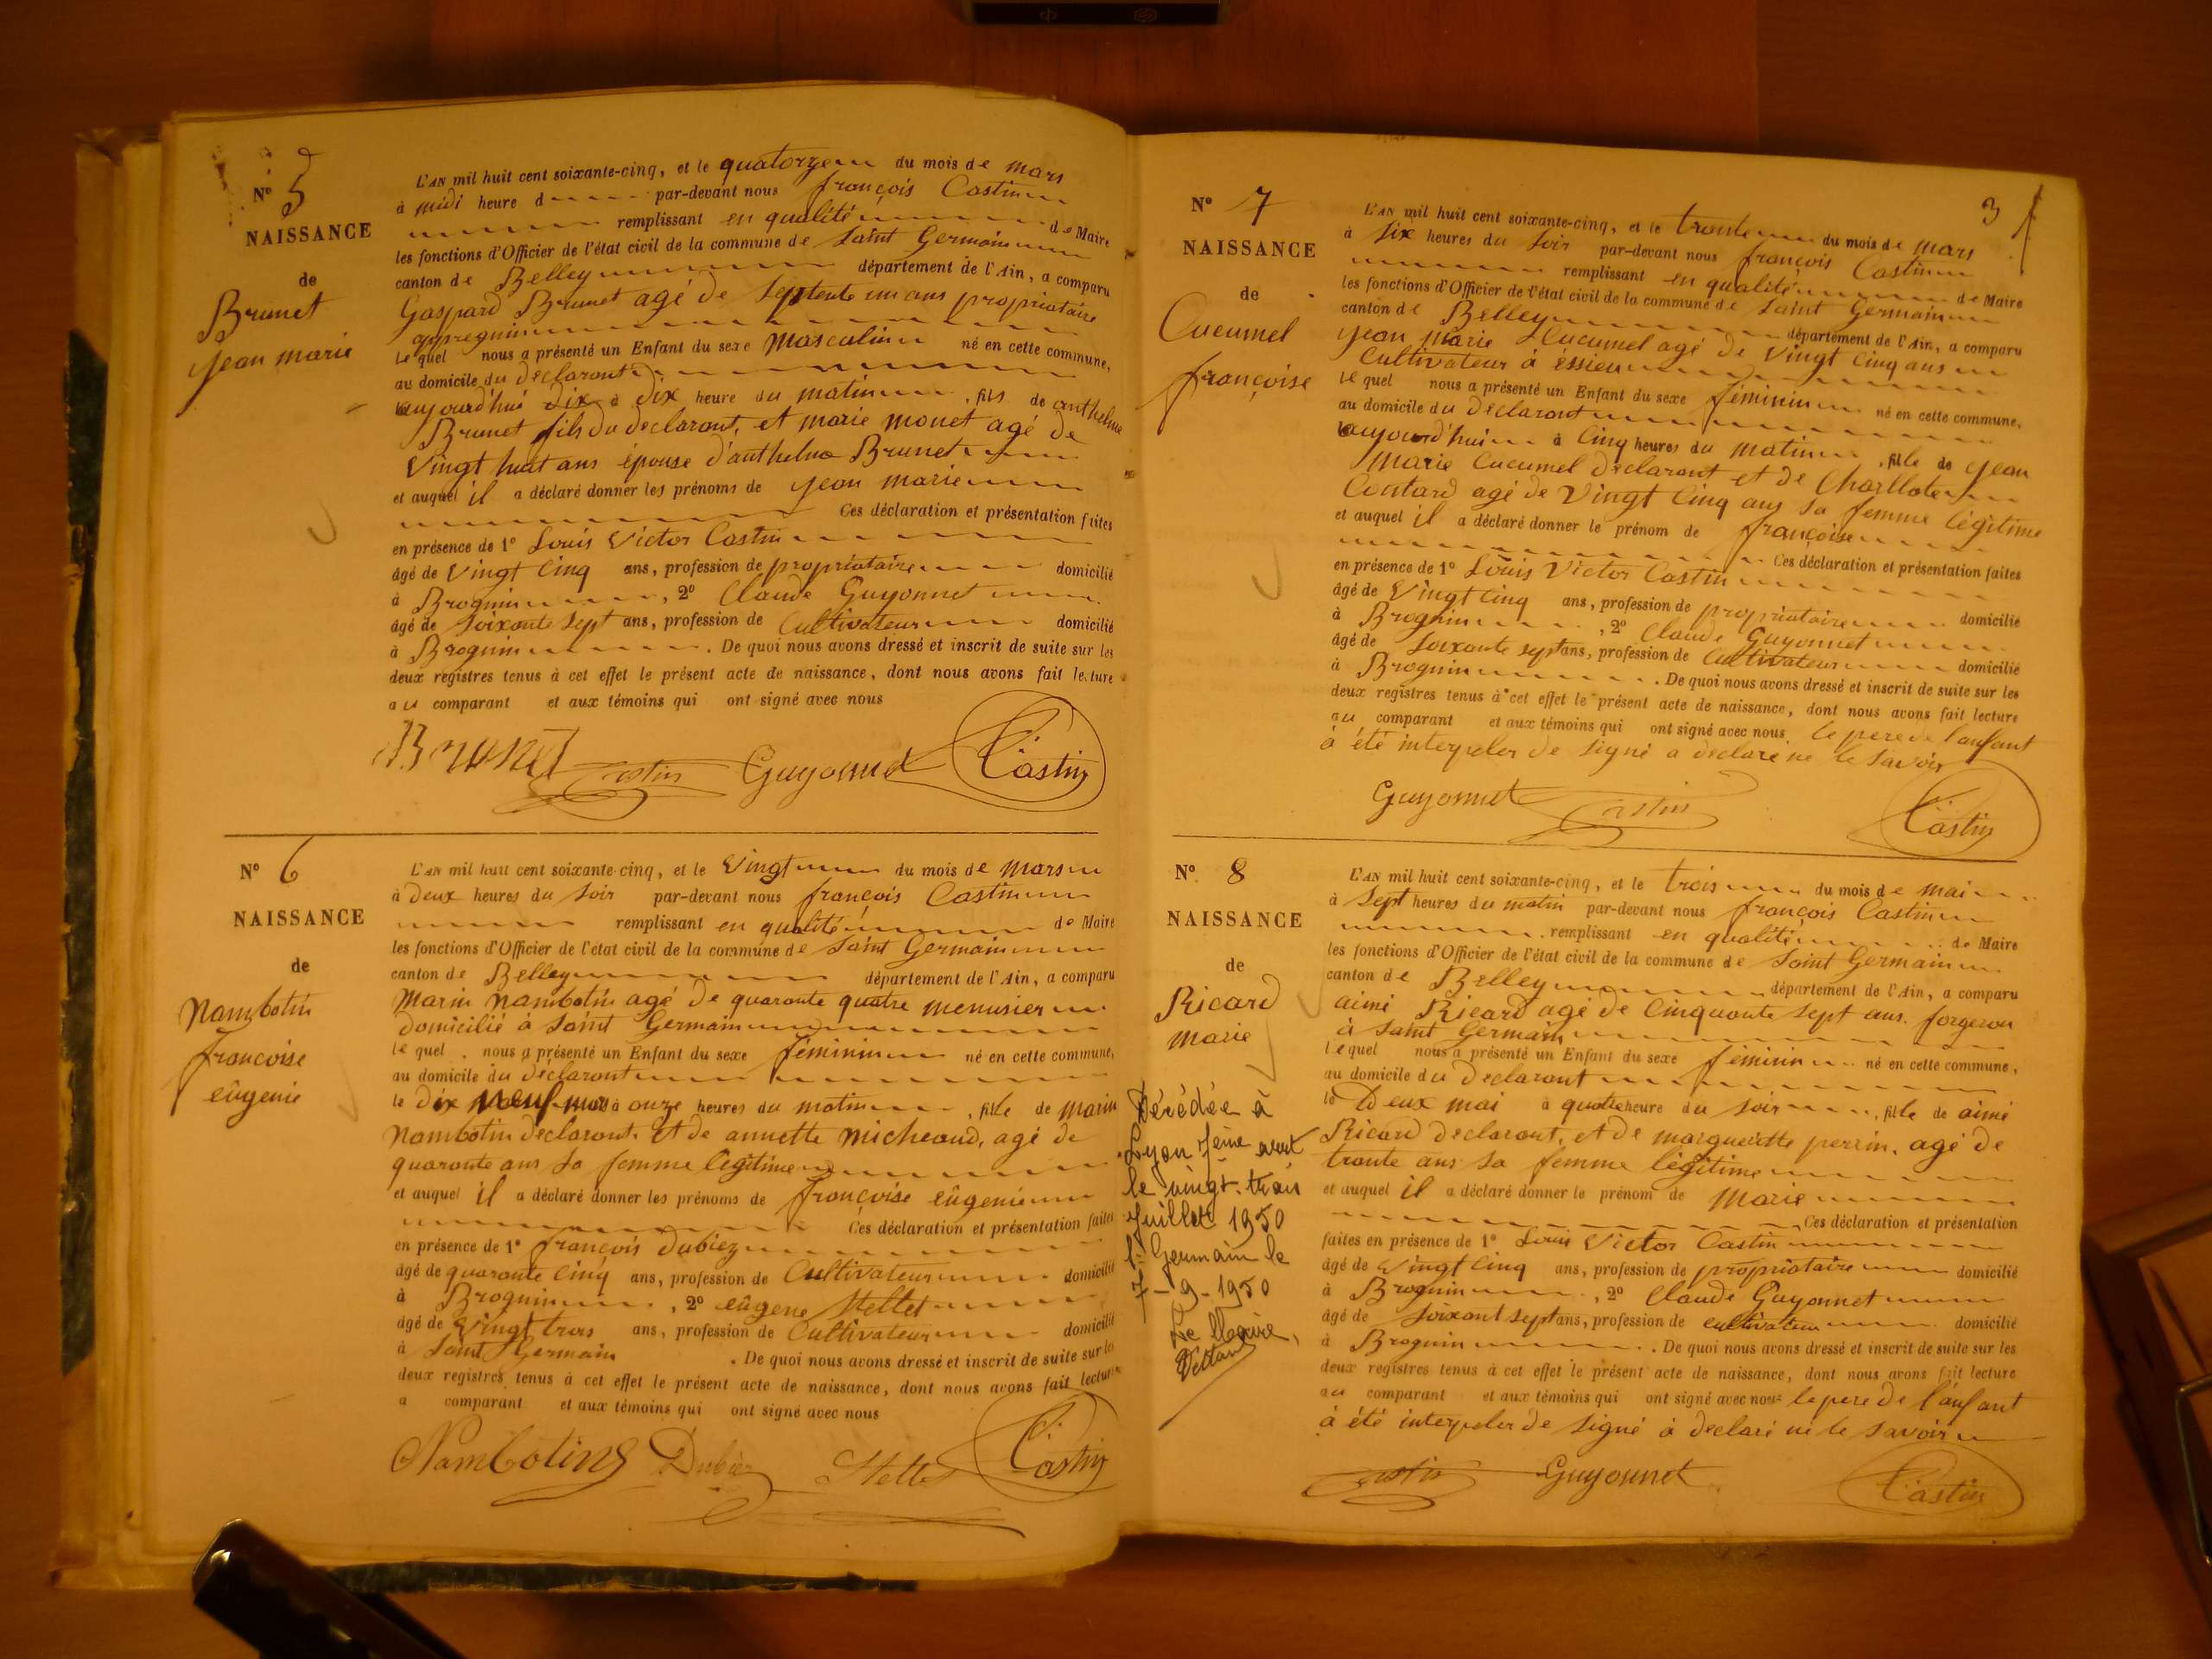 N° 5
NAISSANCE
de
Brunet
Jean marie
L'AN mil huit cent soixante-cinq, et le quatorze du mois de mars
à midi heure d par-devant nous françois Castin
remplissant en qualité de Maire
les fonctions d'Officier de l'état civil de la commune de Saint Germain
canton de Belley département de l'Ain, a comparu
Gaspard Brunet agé de Septente un ans propriataire
appregnin
Le quel nous a présenté un Enfant du sexe masculin né en cette commune,
au domicile du declarant
aujourd'hui dix à dix heure du matin, fils de anthelme
Brunet fils du declarant, et marie monet agé de
Vingt huit ans épouse d'anthelme Brunet
et auquel il a déclaré donner les prénoms de Jean marie
Ces déclaration et présentation faites
en présence de 1° Louis Victor Castin
âgé de Vingt Cinq ans, profession de propriataire domicilié
à Brognin, 2° Claude Guyonnet
âgé de Soixante Sept ans, profession de Cultivateur domicilié
à Brognin. De quoi nous avons dressé et inscrit de suite sur les
deux registres tenus à cet effet le présent acte de naissance, dont nous avons fait lecture
au comparant et aux témoins qui ont signé avec nous
Brunet Castin Guyonnet Castin
N° 6
NAISSANCE
de
Nambotin
francoise
eûgenie
L'AN mil huit cent soixante-cinq, et le Vingt du mois de mars
à Deux heures du Soir par-devant nous françois Castin
remplissant en qualité de Maire
les fonctions d'Officier de l'état civil de la commune de Saint Germain
canton de Belley département de l'Ain, a comparu
Marin nambotin agé de quarante quatre menusier
domicilié à Saint Germain
le quel nous a présenté un Enfant du sexe féminin né en cette commune,
au domicile du déclarant
le Dix neuf mars à onze heures du matin, fille de Marin
Nambotin declarant. Et de annette micheaud, agé de
quarante ans Sa femme légitime
et auquel il a déclaré donner les prénoms de françoise eûgenie
Ces déclaration et présentation faites
en présence de 1° françois Dubiez
âgé de quarante Cinq ans, profession de Cultivateur domicilié
à Brognin, 2° eûgene Mettet
âgé de Vingt trois ans, profession de Cultivateur domicilié
à Saint Germain. De quoi nous avons dressé et inscrit de suite sur les
deux registres tenus à cet effet le présent acte de naissance, dont nous avons fait lecture
a comparant et aux témoins qui ont signé avec nous
Nambotin Dubiez Castin
3
N° 7
NAISSANCE
de
Cucumel
françoise
L'AN mil huit cent soixante-cinq, et le trente du mois de mars
à Six heures du Soir par-devant nous françois Castin
remplissant en qualité de Maire
les fonctions d'Officier de l'état civil de la commune de Saint Germain
canton de Belley département de l'Ain, a comparu
Jean marie Cucumel agé de Vingt Cinq ans
Cultivateur à éssieu
le quel nous a présenté un Enfant du sexe féminin né en cette commune,
au domicile du declarant
aujourd'hui à Cinq heures du matin, fille de Jean
Marie Cucumel declarant et de Charllote
Contard agé de Vingt Cinq ans Sa femme légitime
et auquel il a déclaré donner le prénom de françoise
Ces déclaration et présentation faites
en présence de 1° Louis Victor Castin
âgé de Vingt Cinq ans, profession de propriataire domicilié
à Brognin, 2° Claude Guyonnet
âgé de Soixante sept ans, profession de Cultivateur domicilié
à Brognin. De quoi nous avons dressé et inscrit de suite sur les
deux registres tenus à cet effet le présent acte de naissance, dont nous avons fait lecture
au comparant et aux témoins qui ont signé avec nous le pere de l'anfant
à été interpeler de signé a declaré ne le savoir
Guyonnet Castin Castin
N° 8
NAISSANCE
de
Ricard
Marie
Décédée à
Lyon 7ème arrt
le vingt-trois
Juillet 1950
St Germain le
7-9-1950
Le Maire,
L'AN mil huit cent soixante-cinq, et le trois du mois de mai
à Sept heures du matin par-devant nous françois Castin
remplissant en qualité de Maire
les fonctions d'Officier de l'état civil de la commune de Saint Germain
canton de Belley département de l'Ain, a comparu
aimé Ricard agé de Cinquante Sept ans. forgeron
à Saint Germain
lequel nous a présenté un Enfant du sexe féminin né en cette commune,
au domicile du declarant
le Deux mai à quatre heure du soir, fille de aimé
Ricard declarant, et de marguerite perrin, agé de
trante ans Sa femme légitime
et auquel il a déclaré donner le prénom de Marie
Ces déclaration et présentation
faites en présence de 1° Louis Victor Castin
âgé de Vingt Cinq ans, profession de propriataire domicilié
à Brognin, 2° Claude Guyonnet
âgé de Soixant sept ans, profession de cultivateur domicilié
à Brognin. De quoi nous avons dressé et inscrit de suite sur les
deux registres tenus à cet effet le présent acte de naissance, dont nous avons fait lecture
au comparant et aux témoins qui ont signé avec nous le pere de l'anfant
à été interpeler de signé à declaré ne le savoir
Castin Guyonnet Castin